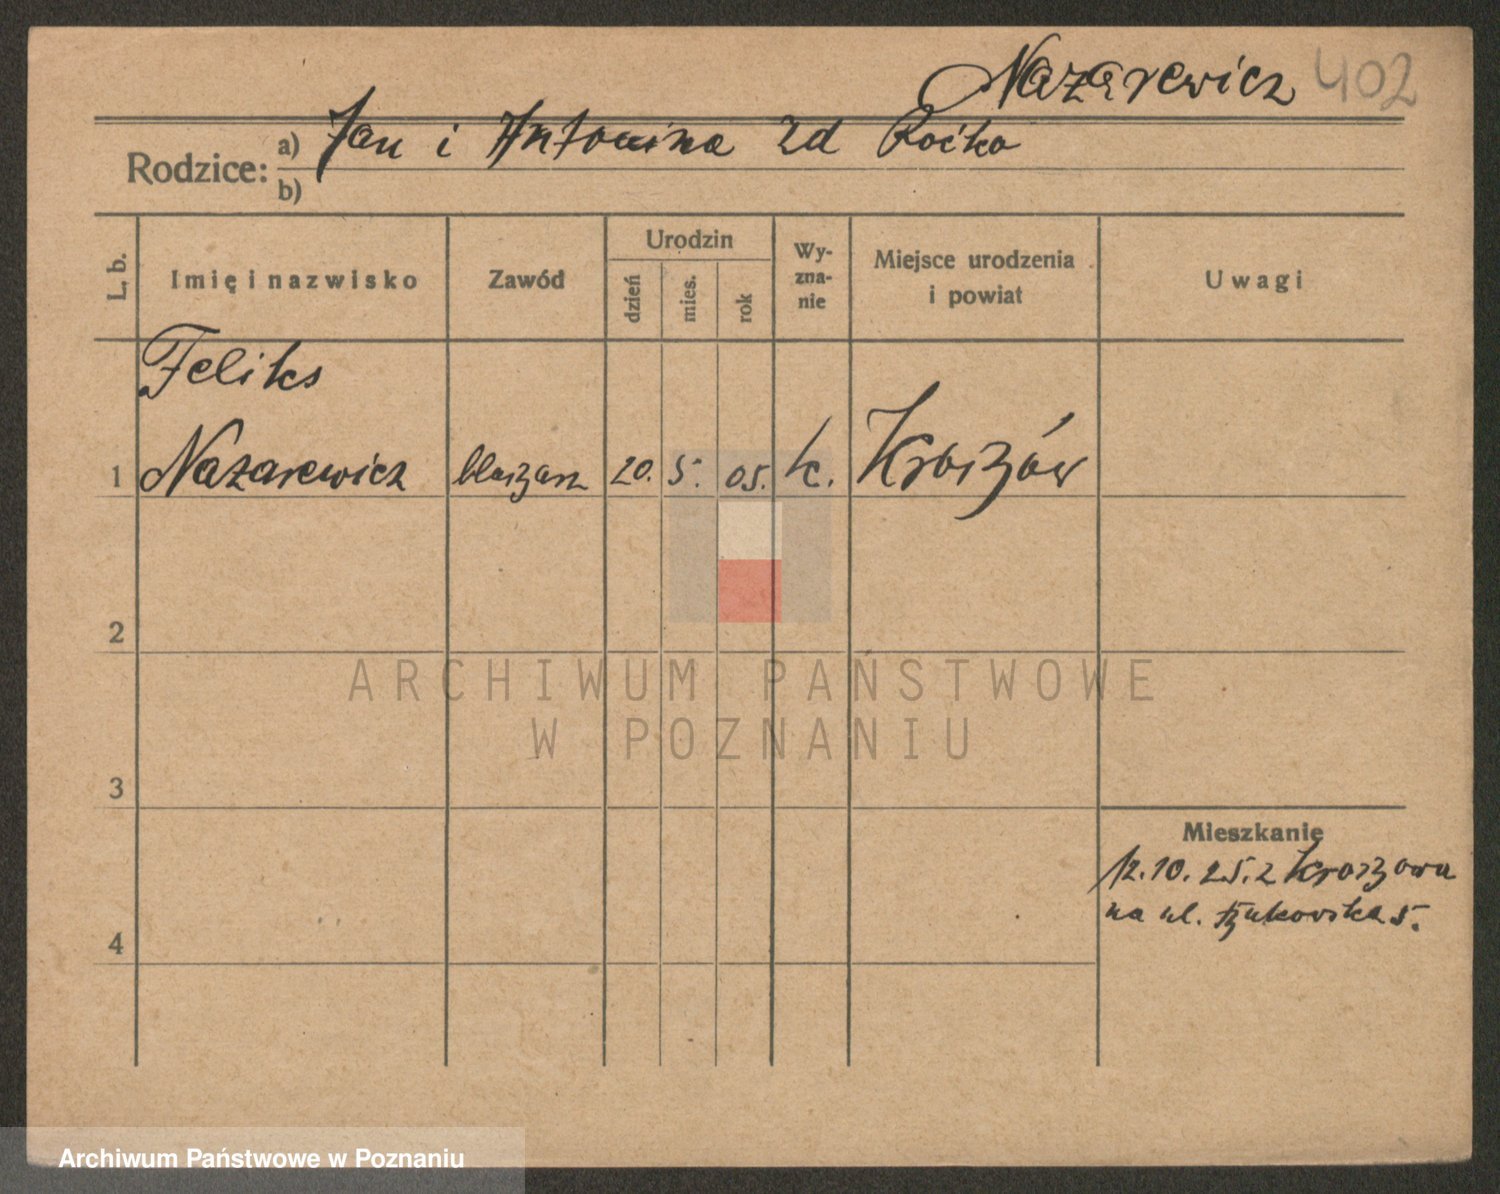 Nazarewicz 402
Rodzice: a) Jan i Antonina zd Roćko
b)
L. b. Imię i nazwisko Zawód Urodzin dzień mies. rok Wy-zna-nie Miejsce urodzenia i powiat Uwagi
Feliks
1 Nazarewicz blacharz 20. 5. 05. k.
2
3
4
Mieszkanie
12.10.25. z
na ul. 5.
ARCHIWUM PAŃSTWOWE
W POZNANIU
Archiwum Państwowe w Poznaniu